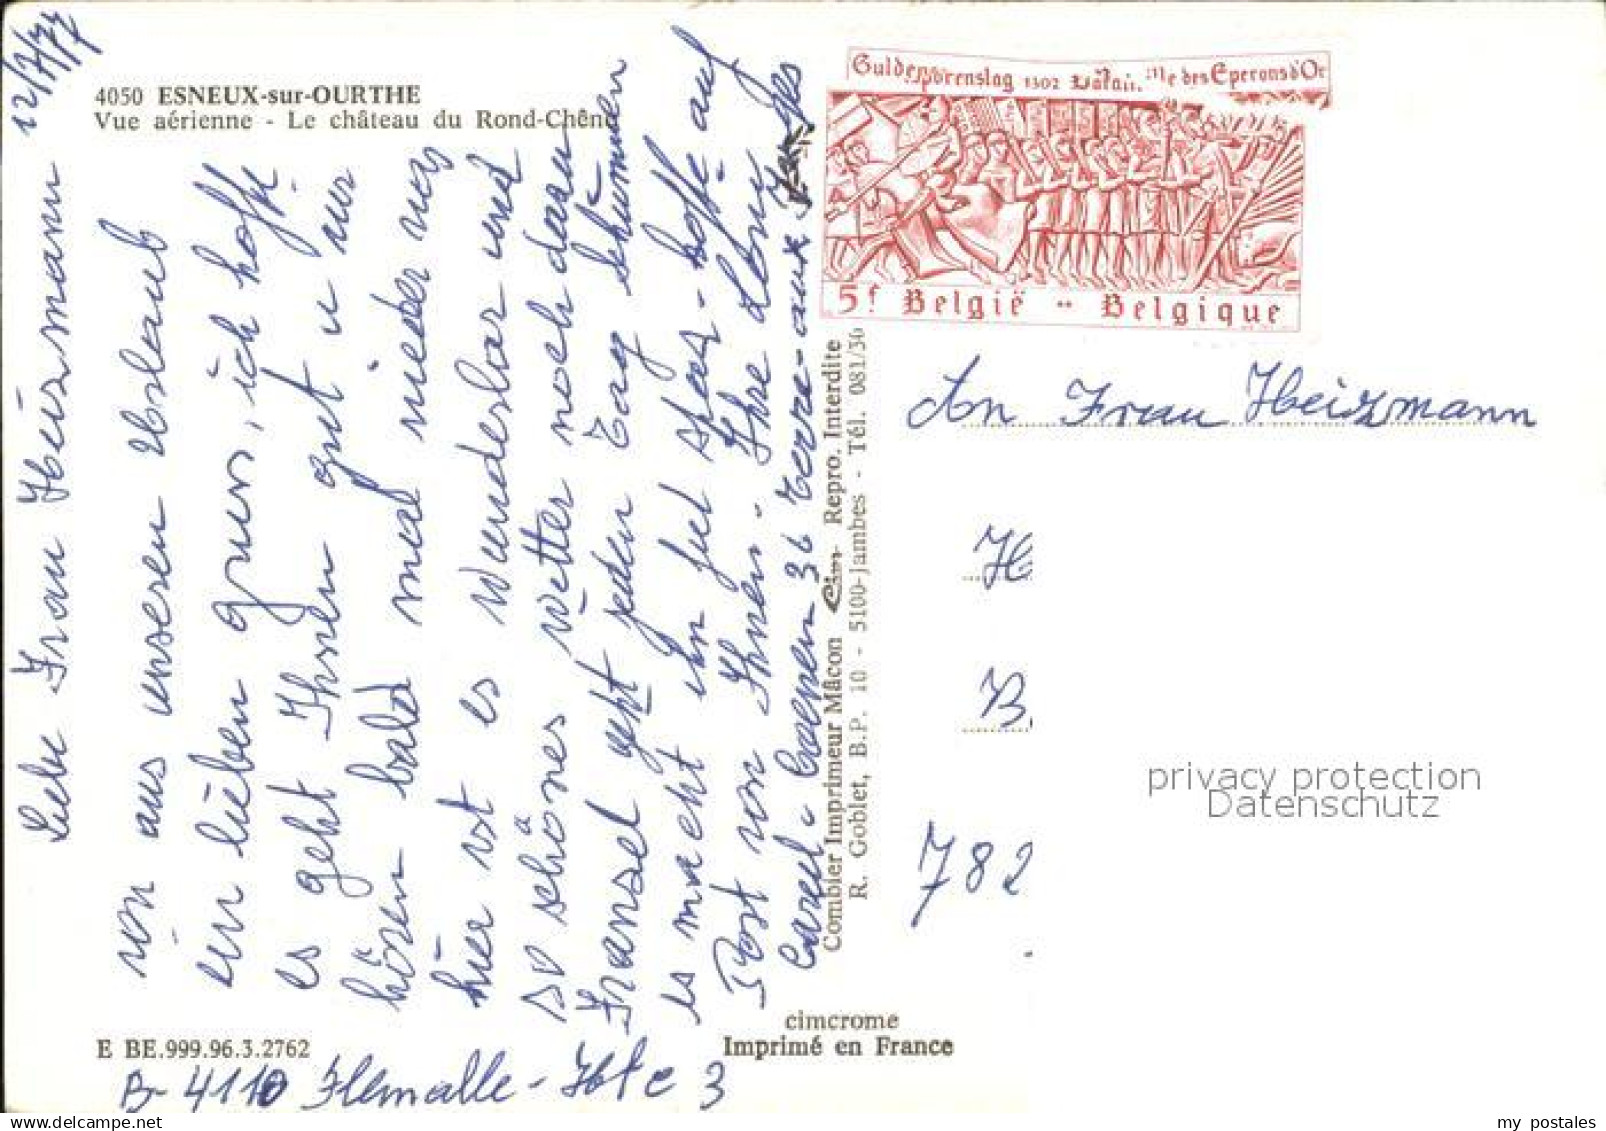 12/7/77
4050 ESNEUX-sur-OURTHE
Vue aérienne - Le château du Rond-Chêne
Liebe Frau Heizmann
von aus unseren Urlaub
ein lieben gruss, ich hoffe
es geht Ihnen gut u wir
hören bald mal wieder was
hier ist es wunderbar und
so schönes Wetter noch dazu
Fransel geht jeden Tag schwimmen
es macht ihn fiel spas - hoffe auf
Post von Ihnen. Ihre Lony
Carel. Coenen 36 Terre-aux
B-4110 Flemalle-Hte 3
E BE.999.96.3.2762
Combier Imprimeur Mâcon Cim Repro. Interdite
R. Goblet, B.P. 10 - 5100-Jambes - Tél. 081/30
cimcrome
Imprimé en France
Guldensporenslag 1302 Bataille des Eperons d'Or
5f België - Belgique
An Frau Heizmann
H
B.
782
privacy protection
Datenschutz
my postales